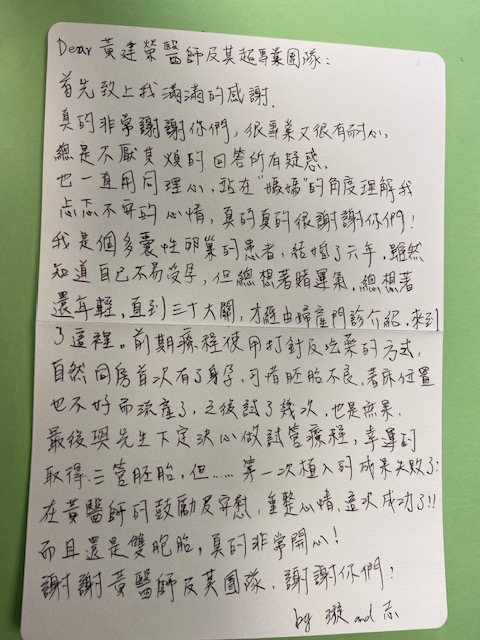 Dear 黃建榮醫師及其超專業團隊：
首先致上我滿滿的感謝．
真的非常謝謝你們，很專業又很有耐心，
總是不厭其煩的回答所有疑惑．
也一直用同理心，站在"媽媽"的角度理解我
忐忑不安的心情，真的真的很謝謝你們！
我是個多囊性卵巢的患者，結婚了六年，雖然
知道自己不易受孕，但總想著賭運氣，總想著
還年輕，直到三十大關，才經由婦產門診介紹，來到
了這裡。前期療程使用打針及吃藥的方式，
自然同房首次有了身孕，可惜胚胎不良、著床位置
也不好而流產了，之後試了幾次，也是無果，
最後與先生下定決心做試管療程，幸運的
取得三管胚胎，但……第一次植入的成果失敗了：
在黃醫師的鼓勵及安慰，重整心情，這次成功了!!
而且還是雙胞胎，真的非常開心！
謝謝黃醫師及其團隊，謝謝你們！
by 璇 and 志